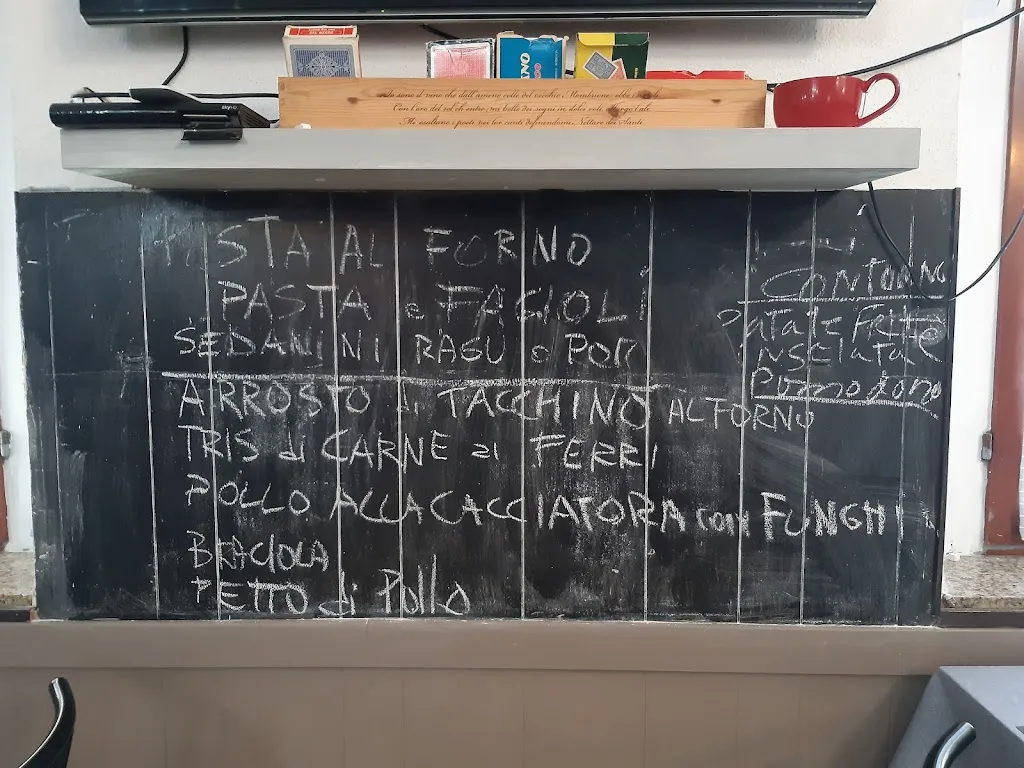 STA AL FORNO
PASTA e FAGIOLI
SEDANINI RAGU o POM
ARROSTO di TACCHINO AL FORNO
TRIS di CARNE ai FERRI
POLLO ALLA CACCIATORA CON FUNGHI
BRACIOLA
PETTO di Pollo
CONTORNI
Patate FRITTE
INSalata
Pomodoro
sono il vino che dall'ameno colle del vecchio Membrione
Con l'oro del sol ch'entro
Mi esaltano i poeti nei lor canti